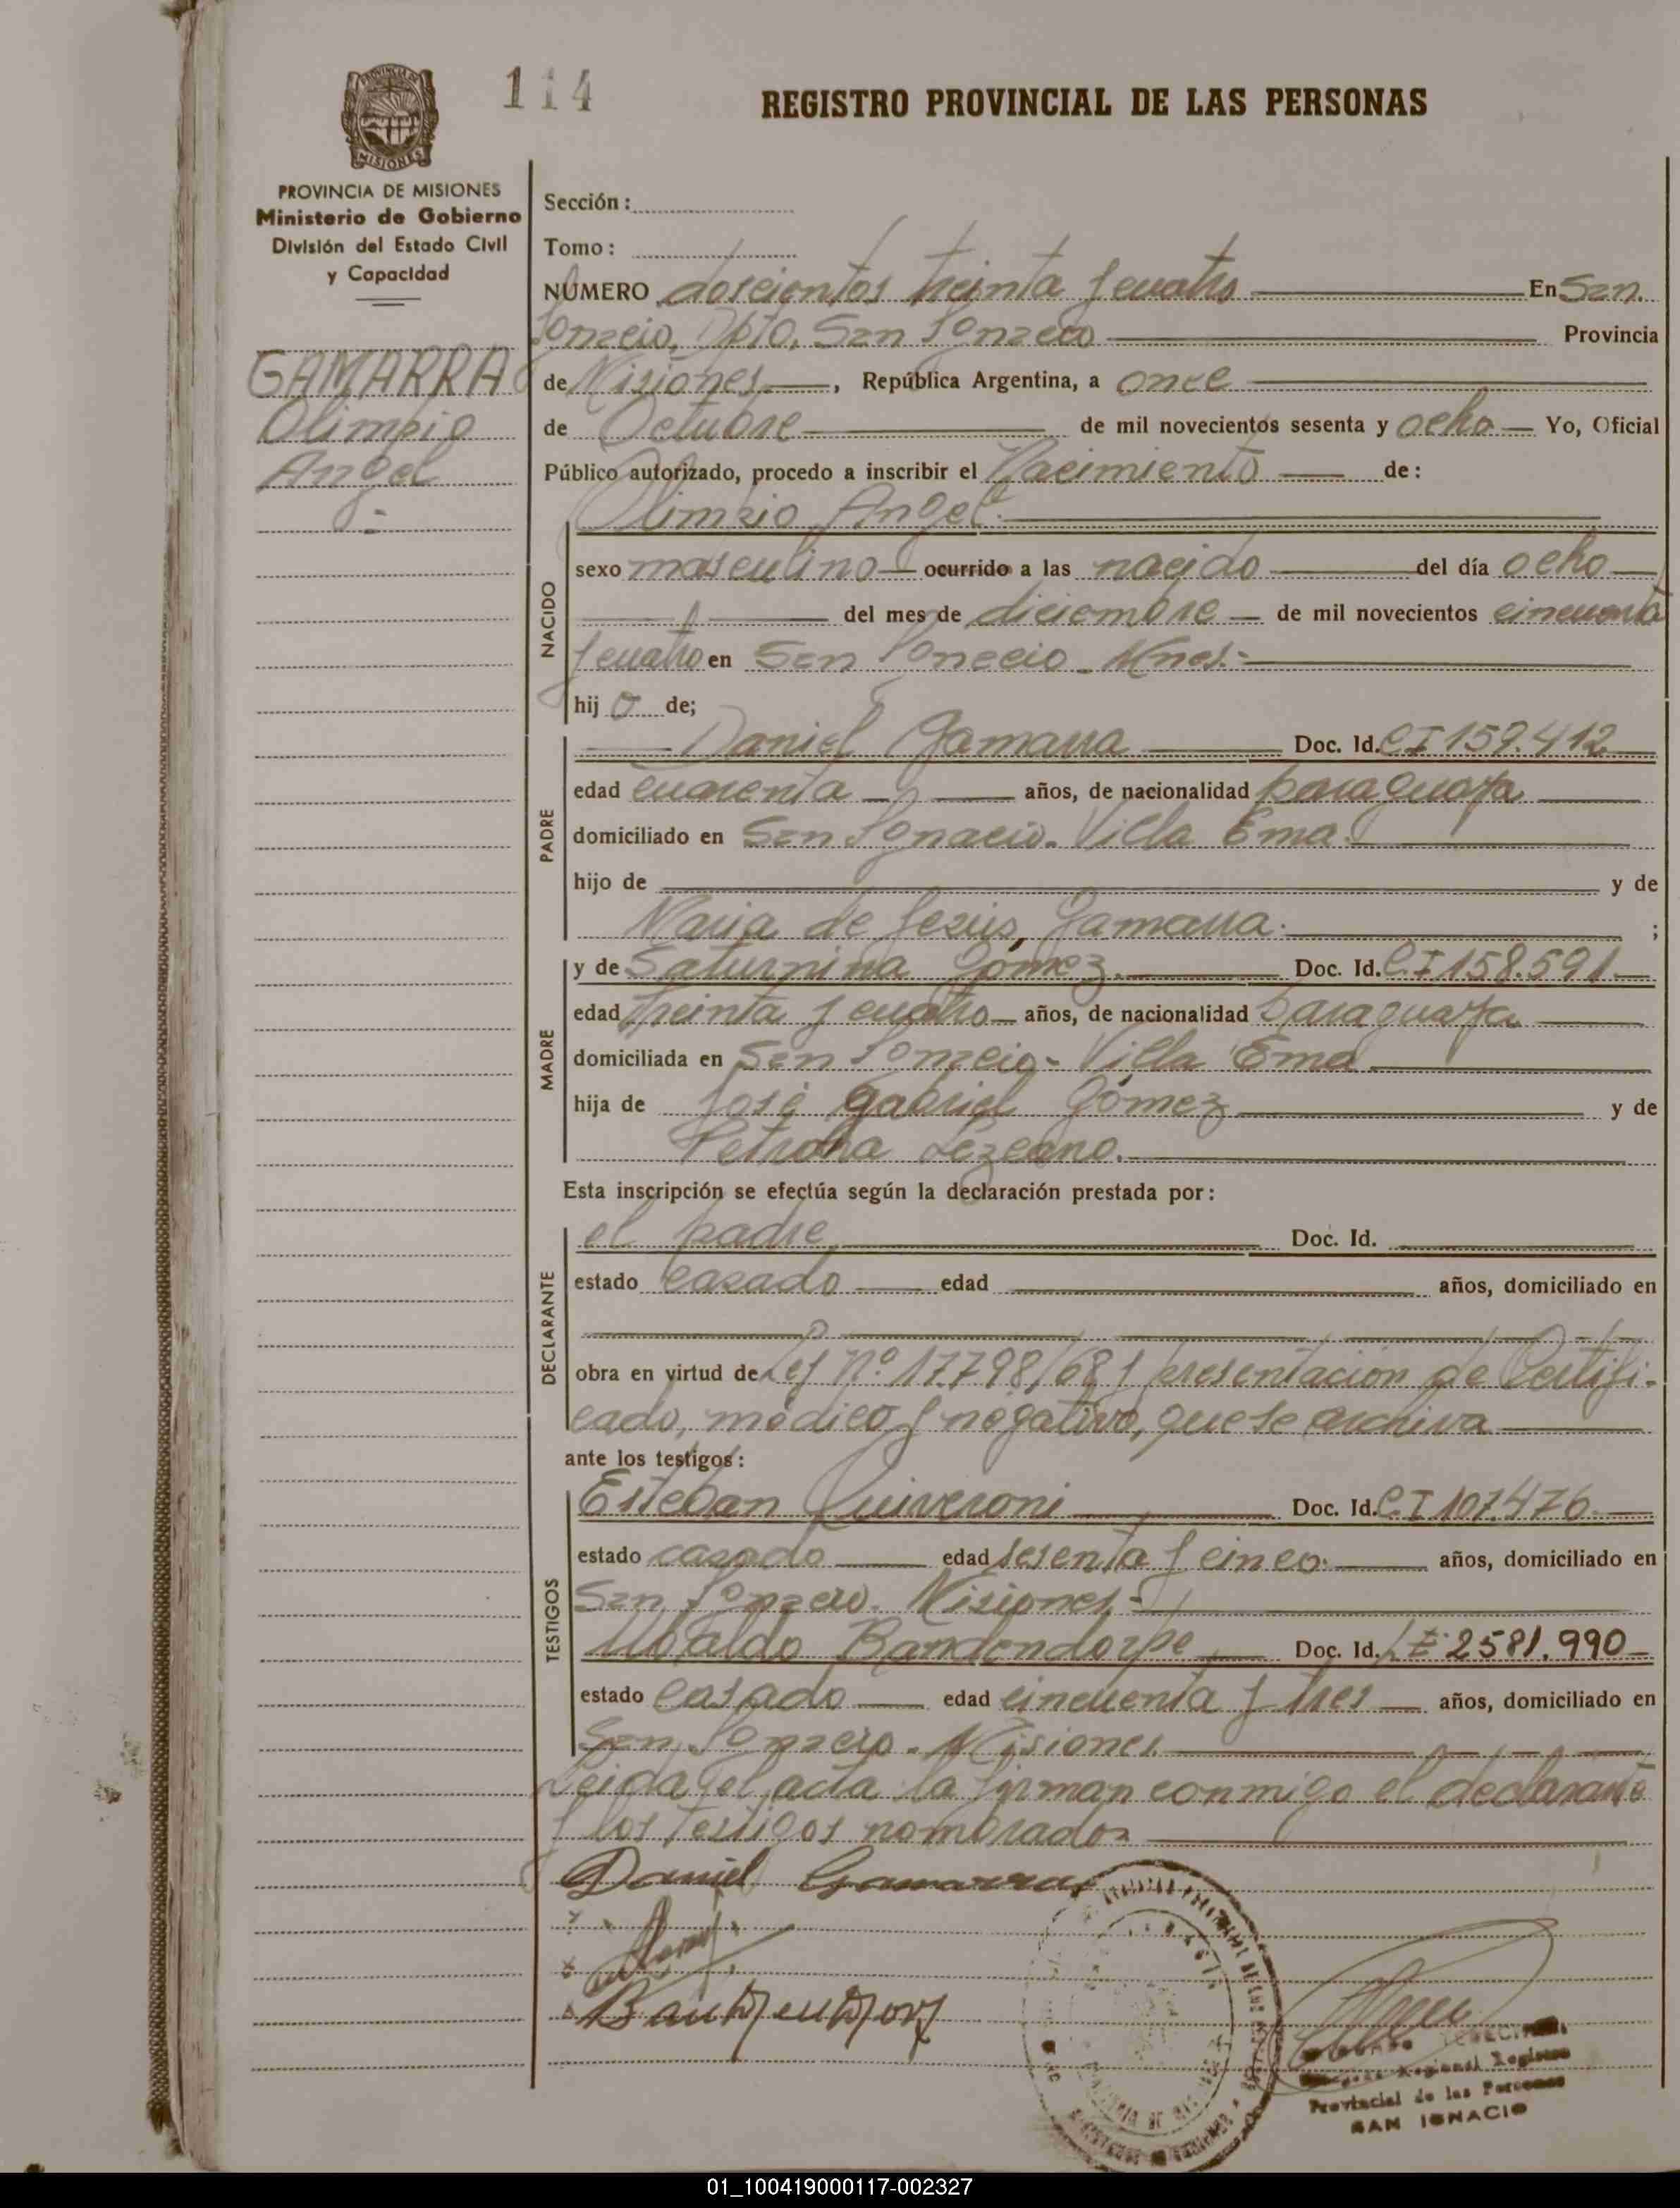 114
REGISTRO PROVINCIAL DE LAS PERSONAS
PROVINCIA DE MISIONES
Ministerio de Gobierno
División del Estado Civil
y Capacidad
GAMARRA
Olimpio
Angel
Sección:
Tomo:
NÚMERO doscientos treinta y cuatro En San
Ignacio, Dpto. San Ignacio Provincia
de Misiones, República Argentina, a once
de Octubre de mil novecientos sesenta y ocho Yo, Oficial
Público autorizado, procedo a inscribir el Nacimiento de:
Olimpio Angel.
NACIDO
sexo masculino ocurrido a las nacido del día ocho
del mes de diciembre de mil novecientos cincuenta
y cuatro en San Ignacio - Mnes.-
hijo de;
PADRE
Daniel Gamarra Doc. Id. CI 159.412
edad cuarenta años, de nacionalidad paraguaya
domiciliado en San Ignacio. Villa Ema.
hijo de y de
Maria de Jesús, Gamarra. ;
MADRE
y de Saturnina Gómez. Doc. Id. CI 158.591
edad treinta y cuatro años, de nacionalidad paraguaya
domiciliada en San Ignacio - Villa Ema
hija de José Gabriel Gómez y de
Petrona Lezcano.
Esta inscripción se efectúa según la declaración prestada por:
DECLARANTE
el padre Doc. Id.
estado casado edad años, domiciliado en
obra en virtud de Ley Nº 17.798/68 y presentación de Certifi-
cado, médico y negativo, que se archiva
ante los testigos:
TESTIGOS
Esteban Quiveroni Doc. Id. CI 107.476
estado casado edad sesenta y cinco. años, domiciliado en
San Ignacio. Misiones.-
Ubaldo Bandendorpe Doc. Id. LE 2581.990
estado casado edad cincuenta y tres años, domiciliado en
San Ignacio. Misiones.
Leida el acta la firman conmigo el declarante
y los testigos nombrados
Daniel Gamarra
Regional Registro
Provincial de las Personas
SAN IGNACIO
01_100419000117-002327